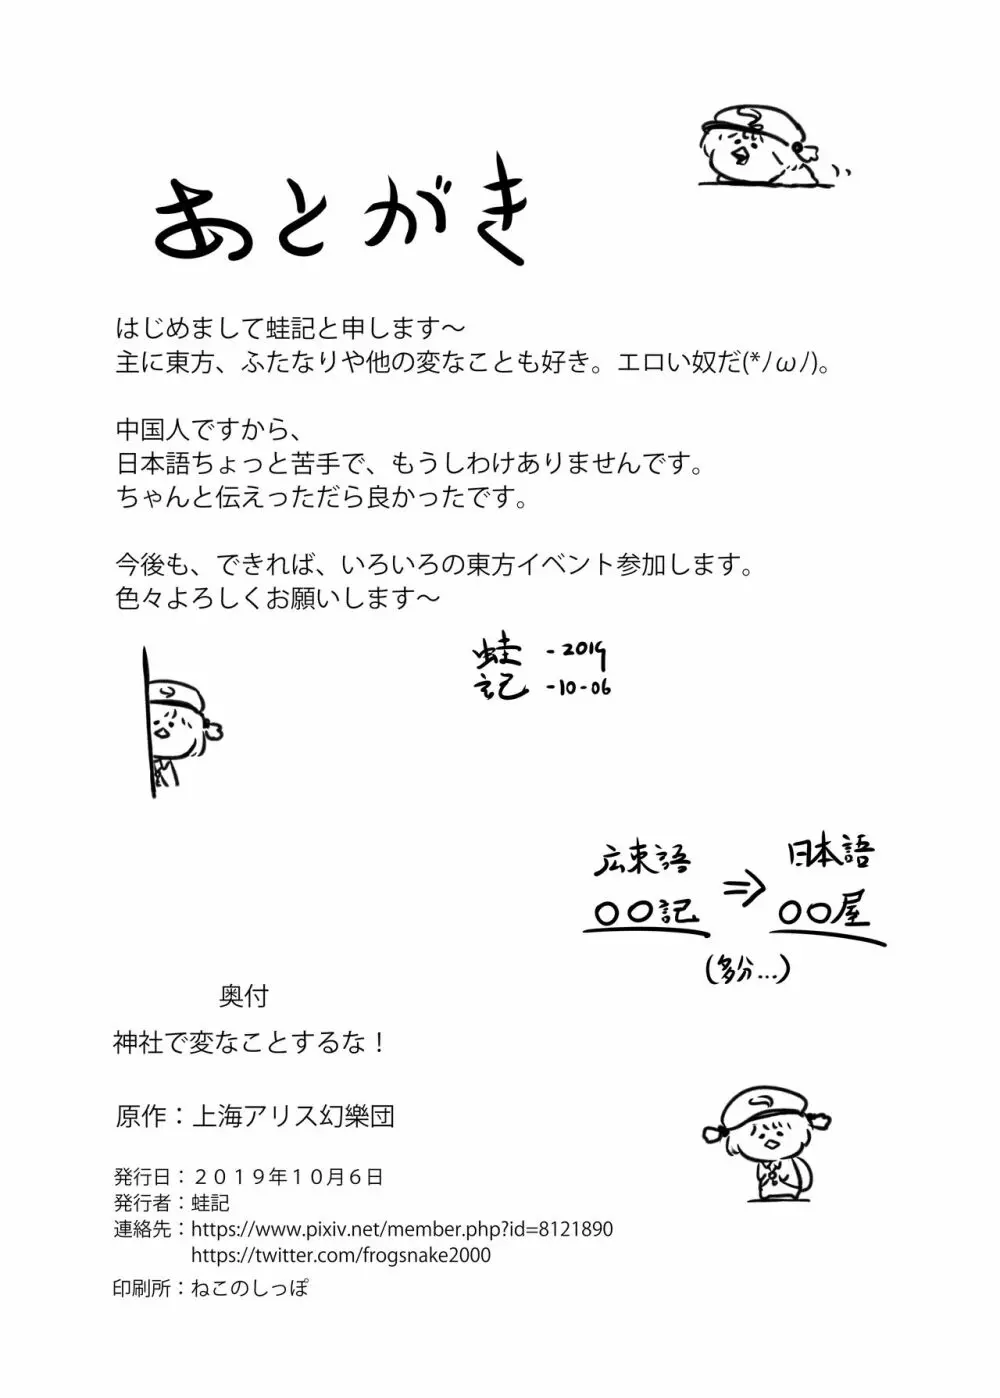 あとがき
はじめまして蛙記と申します～
主に東方、ふたなりや他の変なことも好き。エロい奴だ(*ﾉωﾉ)。
中国人ですから、
日本語ちょっと苦手で、もうしわけありませんです。
ちゃんと伝えっただら良かったです。
今後も、できれば、いろいろの東方イベント参加します。
色々よろしくお願いします～
蛙 -2019
記 -10-06
広東語 ⇒ 日本語
〇〇記 〇〇屋
(多分...)
奥付
神社で変なことするな！
原作：上海アリス幻樂団
発行日：２０１９年１０月６日
発行者：蛙記
連絡先：https://www.pixiv.net/member.php?id=8121890
https://twitter.com/frogsnake2000
印刷所：ねこのしっぽ